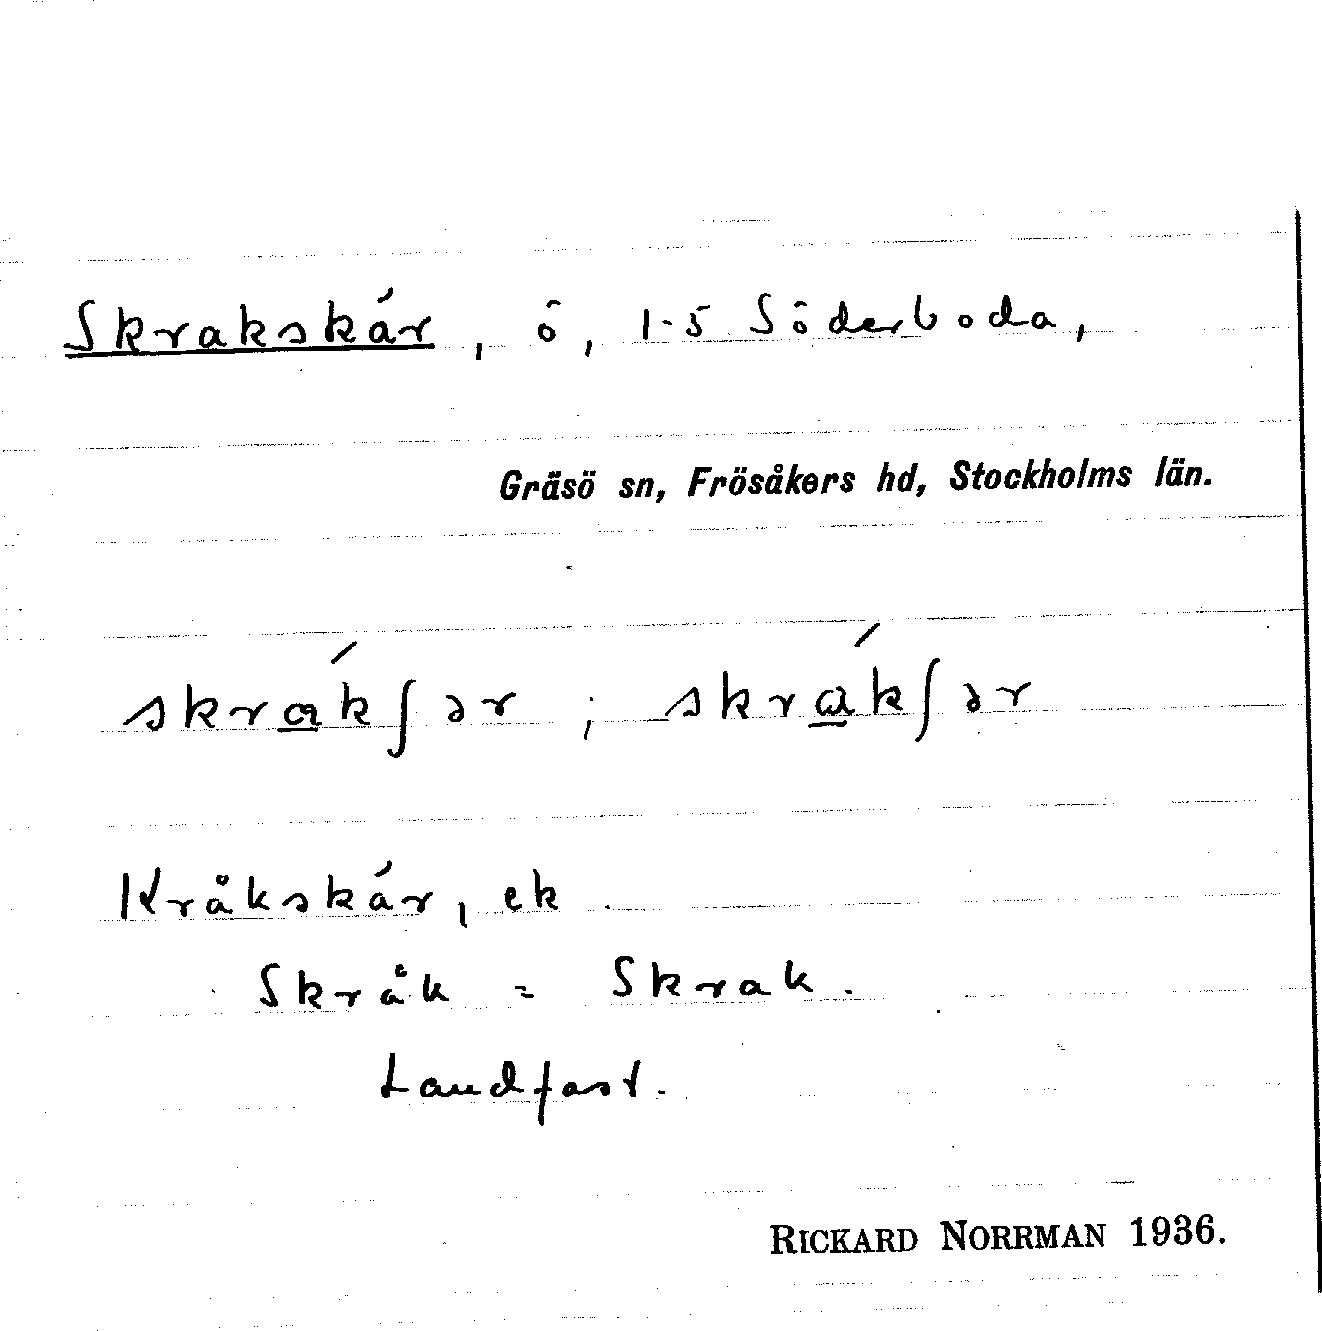 Skrakskär, ö, 1-5 Söderboda,
Gräsö sn, Frösåkers hd, Stockholms län.
skrák∫ər ; skrák∫ər
Kråkskär, ek
Skråk = Skrak.
Landfast.
RICKARD NORRMAN 1936.